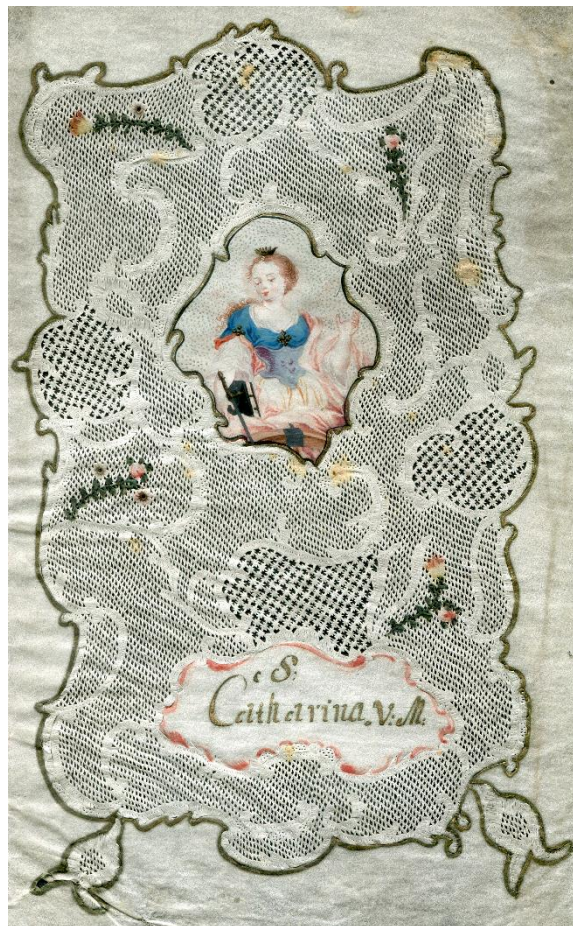 S.
Catharina. V. M.